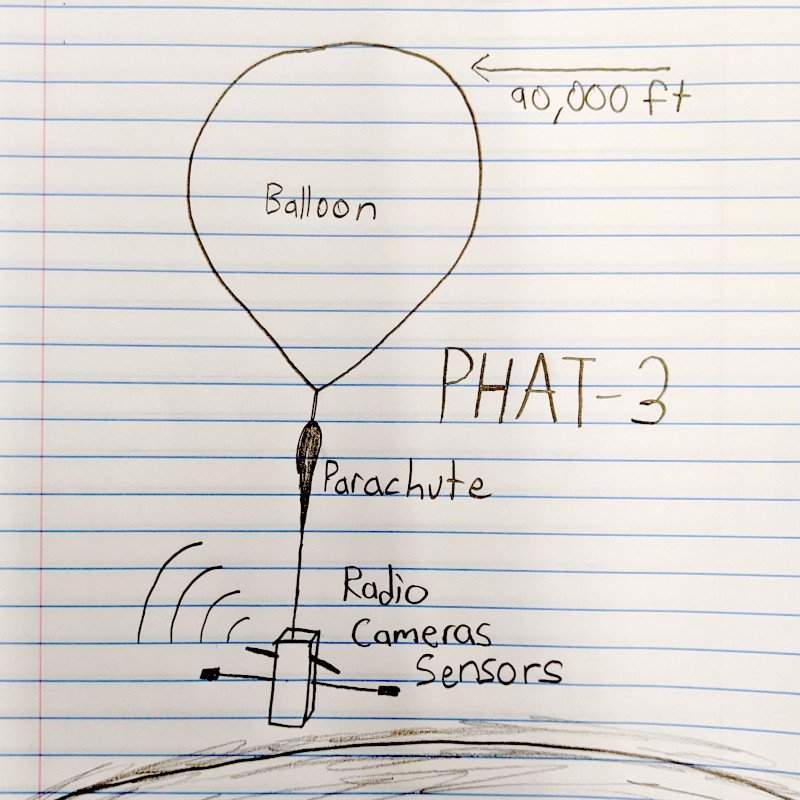 90,000 ft
Balloon
PHAT-3
Parachute
Radio
Cameras
Sensors